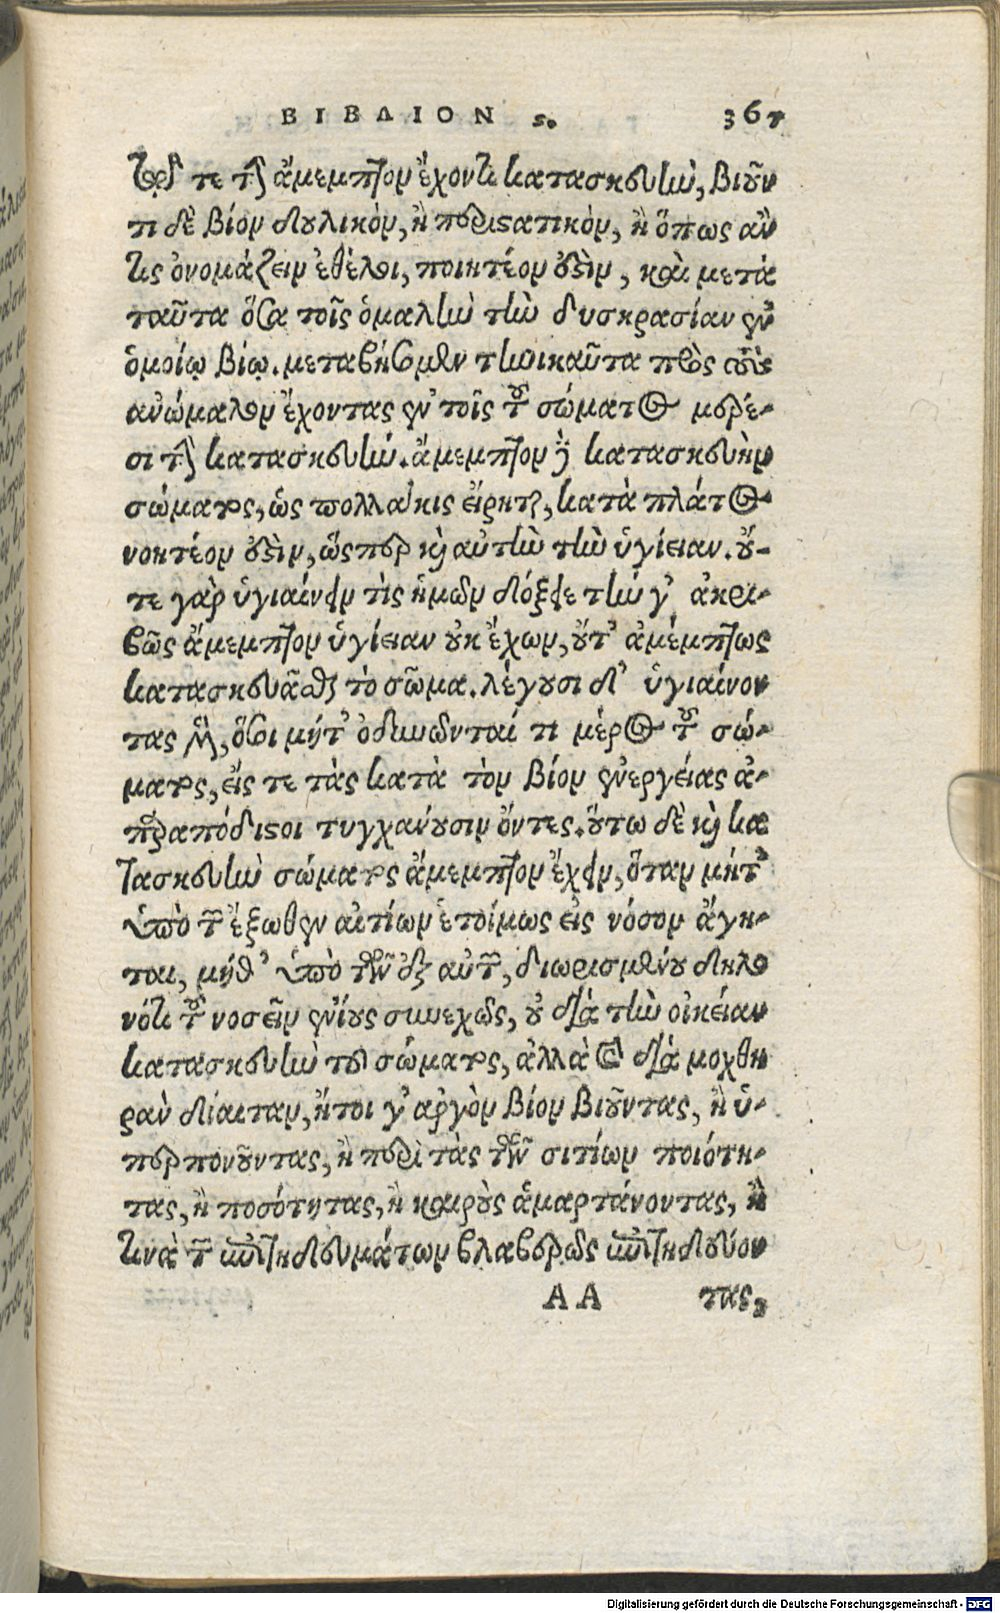 ΒΙΒΛΙΟΝ ϛ. 367
τῷ τε τὴν ἄμεμπτον ἔχοντι κατασκευὴν, βιοῦν
τι δὲ βίον δουλικὸν, ἢ περιστατικὸν, ἢ ὅπως ἂν
τις ὀνομάζειν ἐθέλοι, ποιητέον ἐστὶν, καὶ μετὰ
ταῦτα ὅσα τοῖς ὁμαλὴν τὴν δυσκρασίαν ἐν
ὁμοίῳ βίῳ. μεταβήσομεν τηνικαῦτα πρὸς τοὺς
ἀνώμαλον ἔχοντας ἐν τοῖς τοῦ σώματος μέρε-
σι τὴν κατασκευήν. ἄμεμπτον δὲ κατασκευὴν
σώματος, ὡς πολλάκις εἴρηται, κατὰ πλάτος
νοητέον ἐστὶν, ὥσπερ καὶ αὐτὴν τὴν ὑγίειαν. οὔ-
τε γὰρ ὑγιαίνειν τὶς ἡμῶν δόξειε τήν γ' ἀκρι-
βῶς ἄμεμπτον ὑγίειαν οὐκ ἔχων, οὔτ' ἀμέμπτως
κατασκευᾶσθαι τὸ σῶμα. λέγουσι δ' ὑγιαίνον
τας μὲν, ὅσοι μήτ' ὀδυνῶνταί τι μέρος τοῦ σώ-
ματος, εἴς τε τὰς κατὰ τὸν βίον ἐνεργείας ἀ-
παραπόδιστοι τυγχάνουσιν ὄντες. οὕτω δὲ καὶ κα
τασκευὴν σώματος ἄμεμπτον ἔχειν, ὅταν μήτ'
ὑπὸ τῶν ἔξωθεν αἰτίων ἑτοίμως εἰς νόσον ἄγη-
ται, μήθ' ὑπὸ τῶν ἐξ αὐτοῦ, διωρισμένου δηλο
νότι τοῦ νοσεῖν ἐνίους συνεχῶς, οὐ διὰ τὴν οἰκείαν
κατασκευὴν τοῦ σώματος, ἀλλὰ καὶ διὰ μοχθη
ρὰν δίαιταν, ἤτοι γ' ἀργὸν βίον βιοῦντας, ἢ ὑ-
περπονοῦντας, ἢ περὶ τὰς τῶν σιτίων ποιότη-
τας, ἢ ποσότητας, ἢ καιροὺς ἁμαρτάνοντας, ἢ
τινὰ τῶν ἐπιτηδευμάτων βλαβερῶς ἐπιτηδεύον
ΑΑ τας,
Digitalisierung gefördert durch die Deutsche Forschungsgemeinschaft - DFG